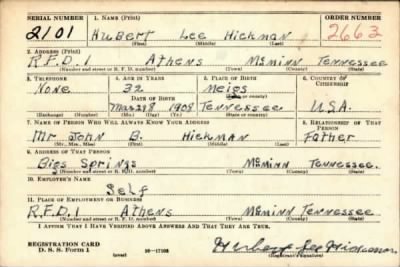 SERIAL NUMBER 1. NAME (Print) ORDER NUMBER
2101 Hubert Lee Hickman 2663
(First) (Middle) (Last)
2. ADDRESS (Print)
R.F.D.1 Athens McMinn Tennessee
(Number and street or R. F. D. number) (Town) (County) (State)
3. TELEPHONE 4. AGE IN YEARS 5. PLACE OF BIRTH 6. COUNTRY OF CITIZENSHIP
None 32 Meigs
DATE OF BIRTH (Town or county)
1908 Tennessee U.S.A.
(Exchange) (Number) (Mo.) (Day) (Yr.) (State or country)
7. NAME OF PERSON WHO WILL ALWAYS KNOW YOUR ADDRESS 8. RELATIONSHIP OF THAT PERSON
Mr John B. Hickman Father
(Mr., Mrs., Miss) (First) (Middle) (Last)
9. ADDRESS OF THAT PERSON
Bigs Springs McMinn Tennessee.
(Number and street or R. F. D. number) (Town) (County) (State)
10. EMPLOYER'S NAME
Self
11. PLACE OF EMPLOYMENT OR BUSINESS
R.F.D.1 Athens McMinn Tennessee
(Number and street or R. F. D. number) (Town) (County) (State)
I AFFIRM THAT I HAVE VERIFIED ABOVE ANSWERS AND THAT THEY ARE TRUE.
REGISTRATION CARD
D. S. S. Form 1 16—17105 Hubert Lee Hickman
(over) (Registrant's signature)